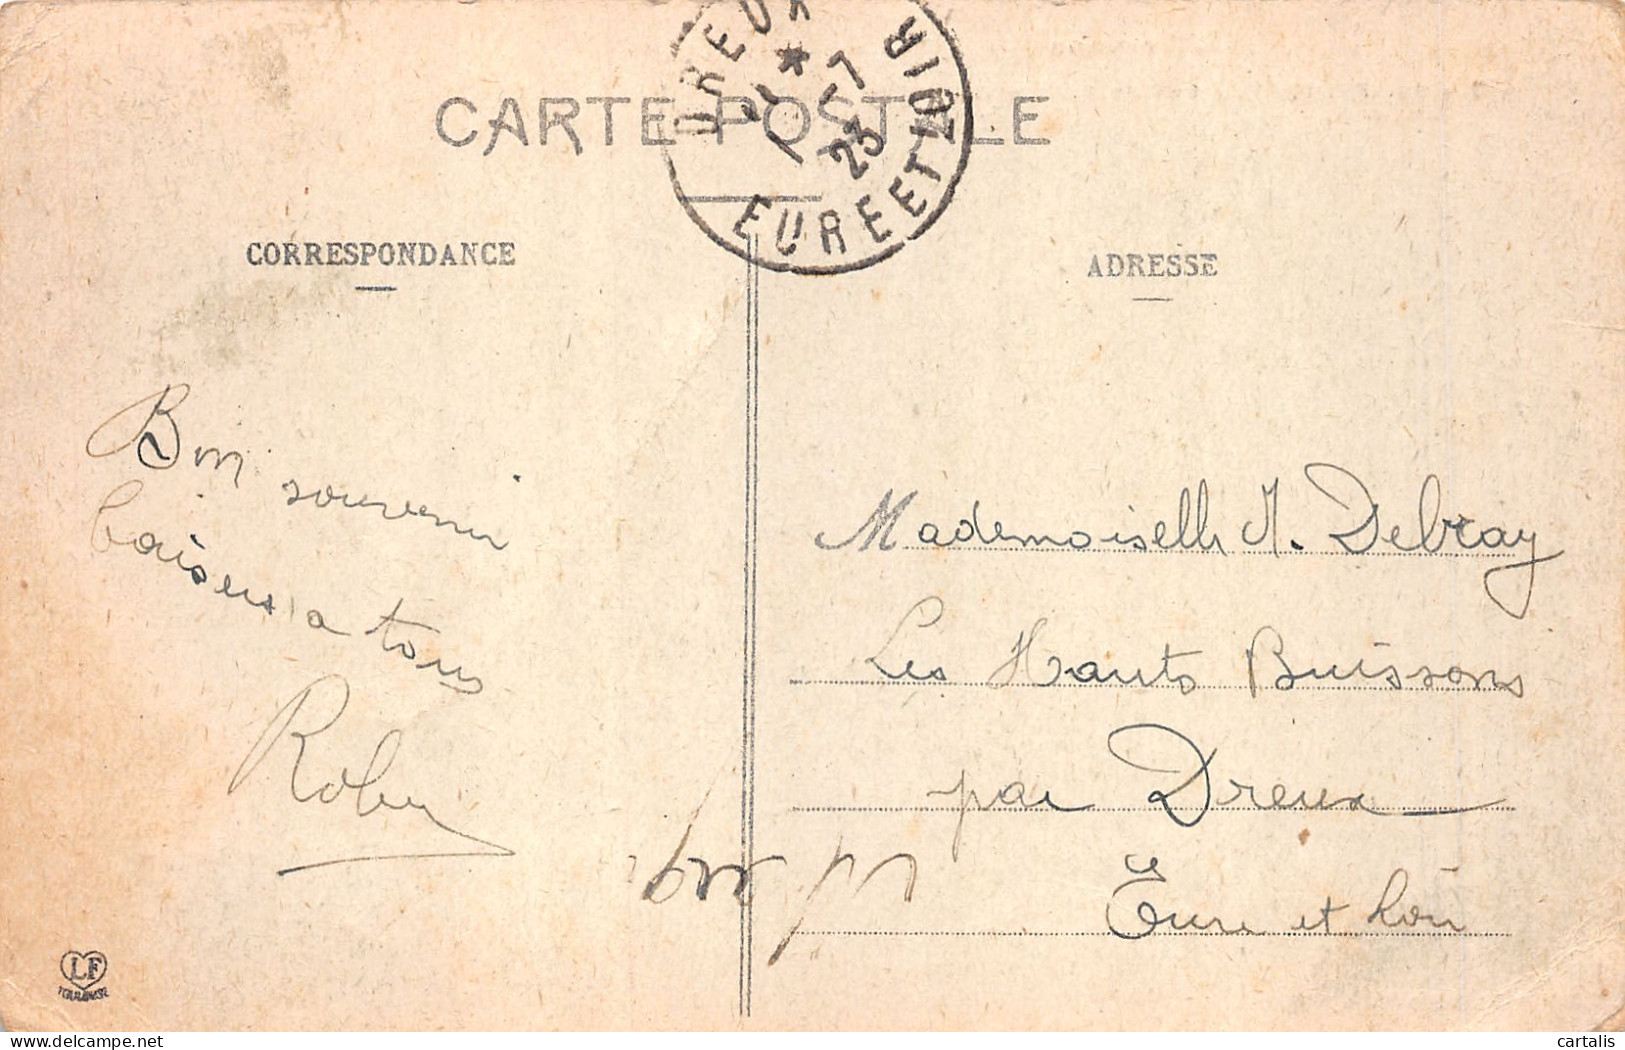 CARTE POSTALE
DREUX
EURE ET LOIR
* 7
23
CORRESPONDANCE
ADRESSE
Bon souvenir
baisers a tous
Robin
Mademoiselle M. Debray
Les Hauts Buissons
par Dreux
Eure et Loir
LF
TOULOUSE
cartalis
delcampe.net